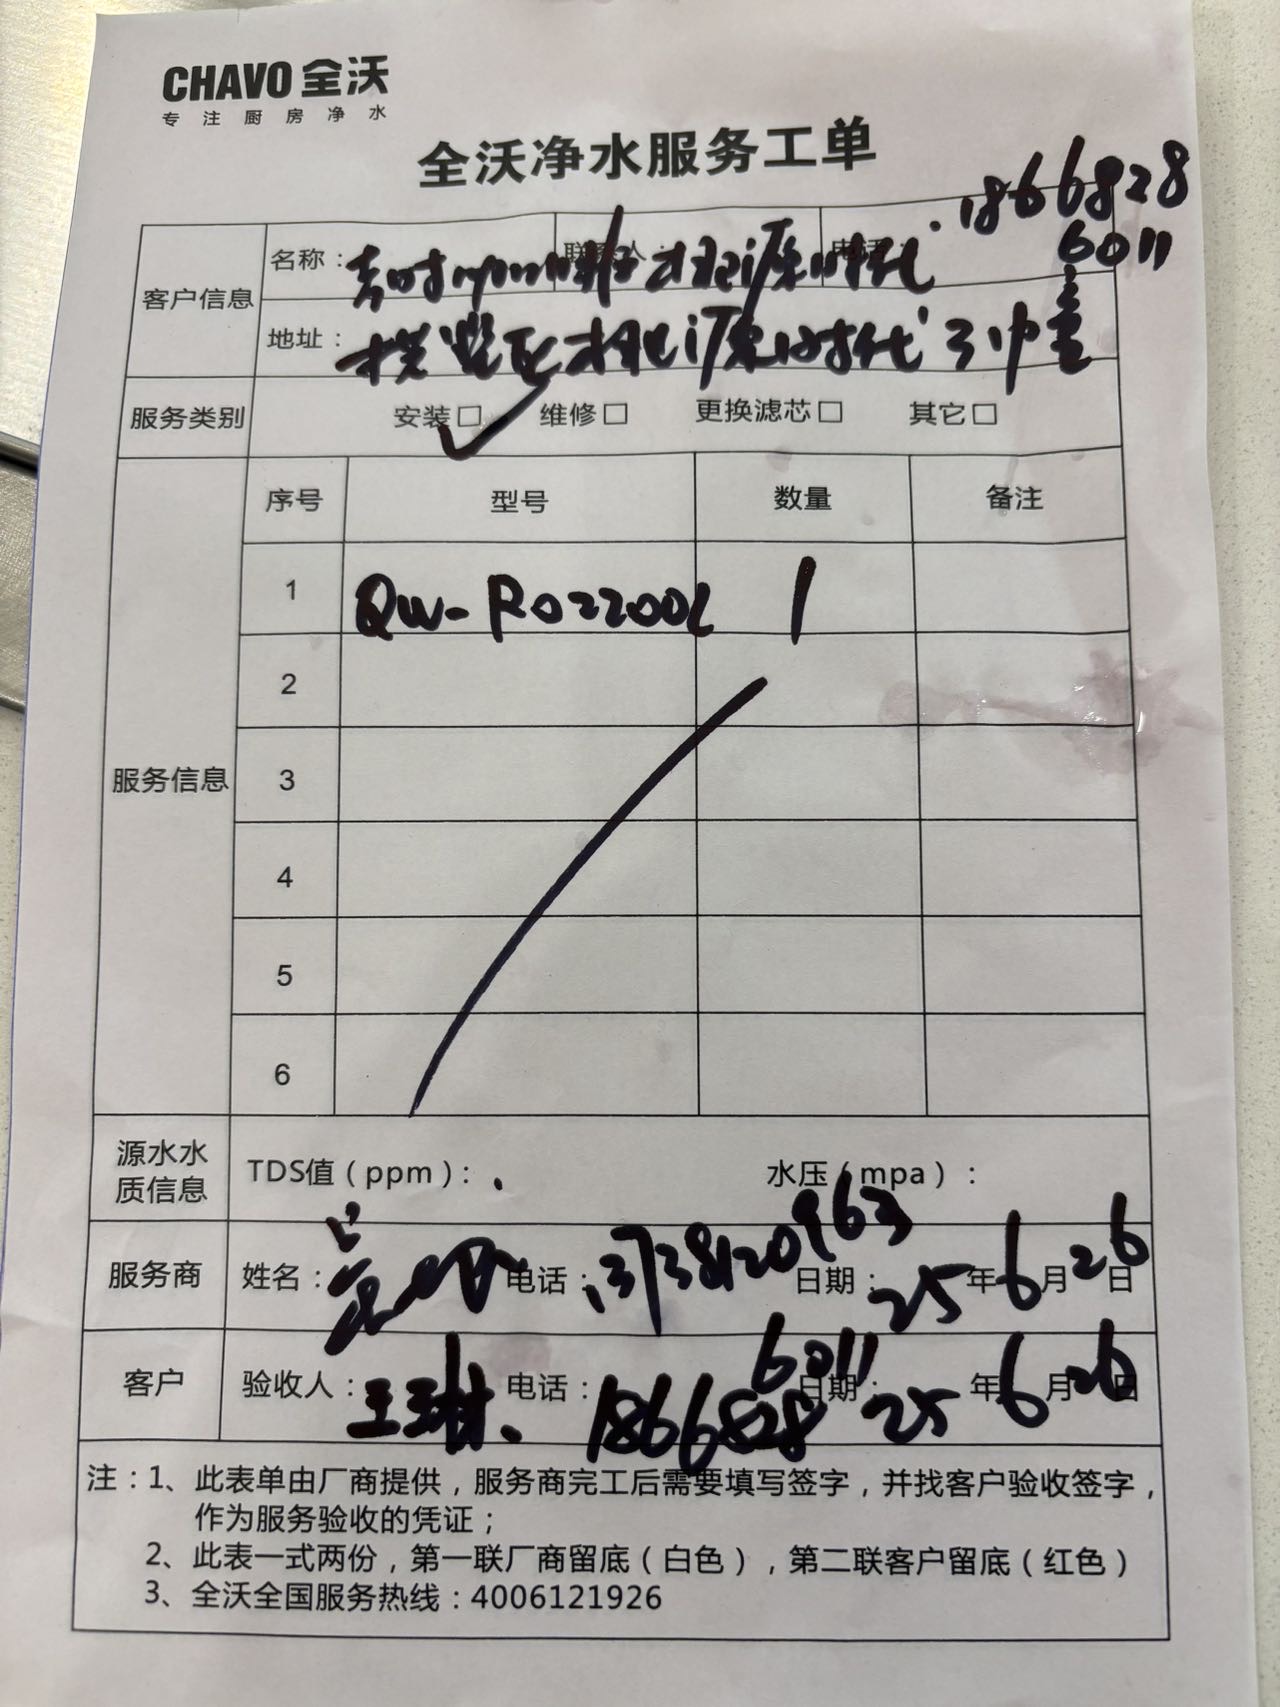 CHAVO 全沃
专注厨房净水
全沃净水服务工单
18668286011
客户信息
名称：
联系人：
电话：
地址：
服务类别
安装☐ ✓ 维修☐ 更换滤芯☐ 其它☐
服务信息
序号 型号 数量 备注
1 QW-RO2200L 1
2
3
4
5
6
源水水质信息
TDS值（ppm）： 水压（mpa）：
服务商 姓名： 电话：13738120963 日期：25年6月26日
客户 验收人：王琳 电话：18668286011 日期：25年6月26日
注：1、此表单由厂商提供，服务商完工后需要填写签字，并找客户验收签字，
作为服务验收的凭证；
2、此表一式两份，第一联厂商留底（白色），第二联客户留底（红色）
3、全沃全国服务热线：4006121926